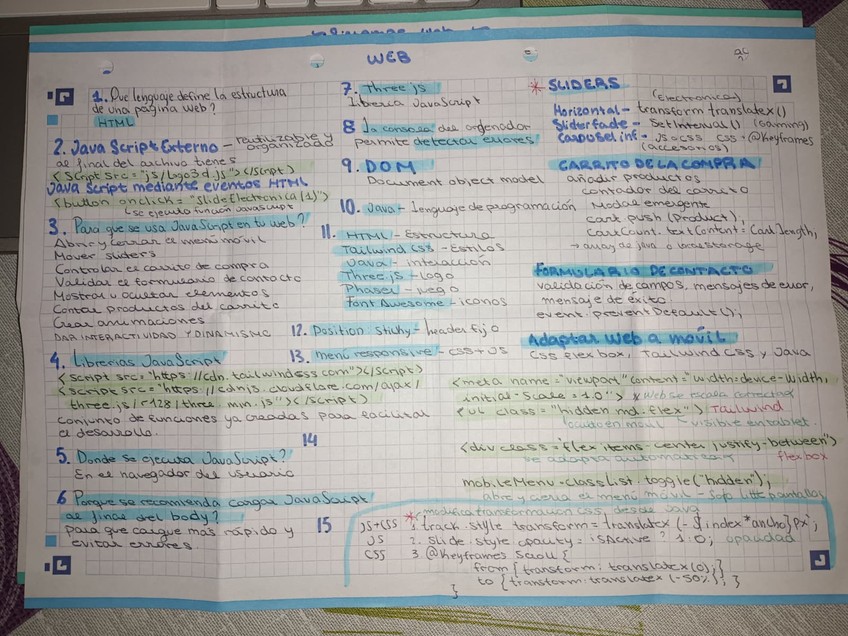 WEB
1. Que lenguaje define la estructura
de una página web?
HTML
2. Java Script Externo - reutilizable y
organizado
al final del archivo tienes
<script src="js/logo3d.js"></script>
Java Script mediante eventos HTML
<button onclick="SlideElectronica(1)">
se ejecuta función Javascript
3. Para que se usa JavaScript en tu web?
Abrir y cerrar el menú móvil
Mover sliders
Controlar el carrito de compra
Validar el formulario de contacto
Mostrar u ocultar elementos
Contar productos del carrito
Crear animaciones
DAR INTERACTIVIDAD Y DINAMISMO
4. Librerias JavaScript
<script src="https://cdn.tailwindcss.com"></script>
<script src="https://cdnjs.cloudflare.com/ajax/
three.js/r128/three.min.js"></script>
conjunto de funciones ya creadas para facilitar
el desarollo.
5. Donde se ejecuta JavaScript?
En el navegador del usuario
6 Porque se recomienda cargar JavaScript
al final del body?
para que cargue mas rápido y
evitar errores
7. Three js
libreria JavaScript
8 la consola del ordenador
permite detectar errores
9. DOM
Document object model
10. Java - lenguaje de programación
11. HTML - Estructura
Tailwind CSS - Estilos
Java - interacción
Three js - logo
Phaser - juego
Font Awesome - iconos
12. Position: sticky - header fijo
13. menú responsive - CSS + JS
14
15
* SLIDERS
(Electronica)
Horizontal - transform translatex()
Slider fade - SetInterval() (Gaming)
Carousel inf - JS o CSS CSS → @Keyframes
(accesorios)
CARRITO DE LA COMPRA
añadir productos
contador del carrito
Modal emergente
cart.push(product);
CartCount.textContent = Cart.length;
→ array de java o localstorage
FORMULARIO DE CONTACTO
validación de campos, mensajes de error,
mensaje de éxito.
event.preventDefault();
Adaptar web a móvil
CSS flexbox, Tailwind CSS y Java
<meta name="viewport" content="width=device-width,
initial-scale=1.0">
<ul class="hidden md:flex"> Tailwind
oculto en móvil visible en tablet
<div class="flex items-center justify-between">
se adapta automatica flexbox
mobileMenu.classList.toggle("hidden");
abre y cierra el menú móvil - Solo
* modifica transformation CSS, desde Java
JS+CSS 1. track.style transform = translatex(-${index*ancho}px;
JS 2. Slide.style opacity = isActive ? 1:0; opacidad
CSS 3. @Keyframes Scroll {
from {transform: translatex(0);}
to {transform: translatex(-50%); }
}